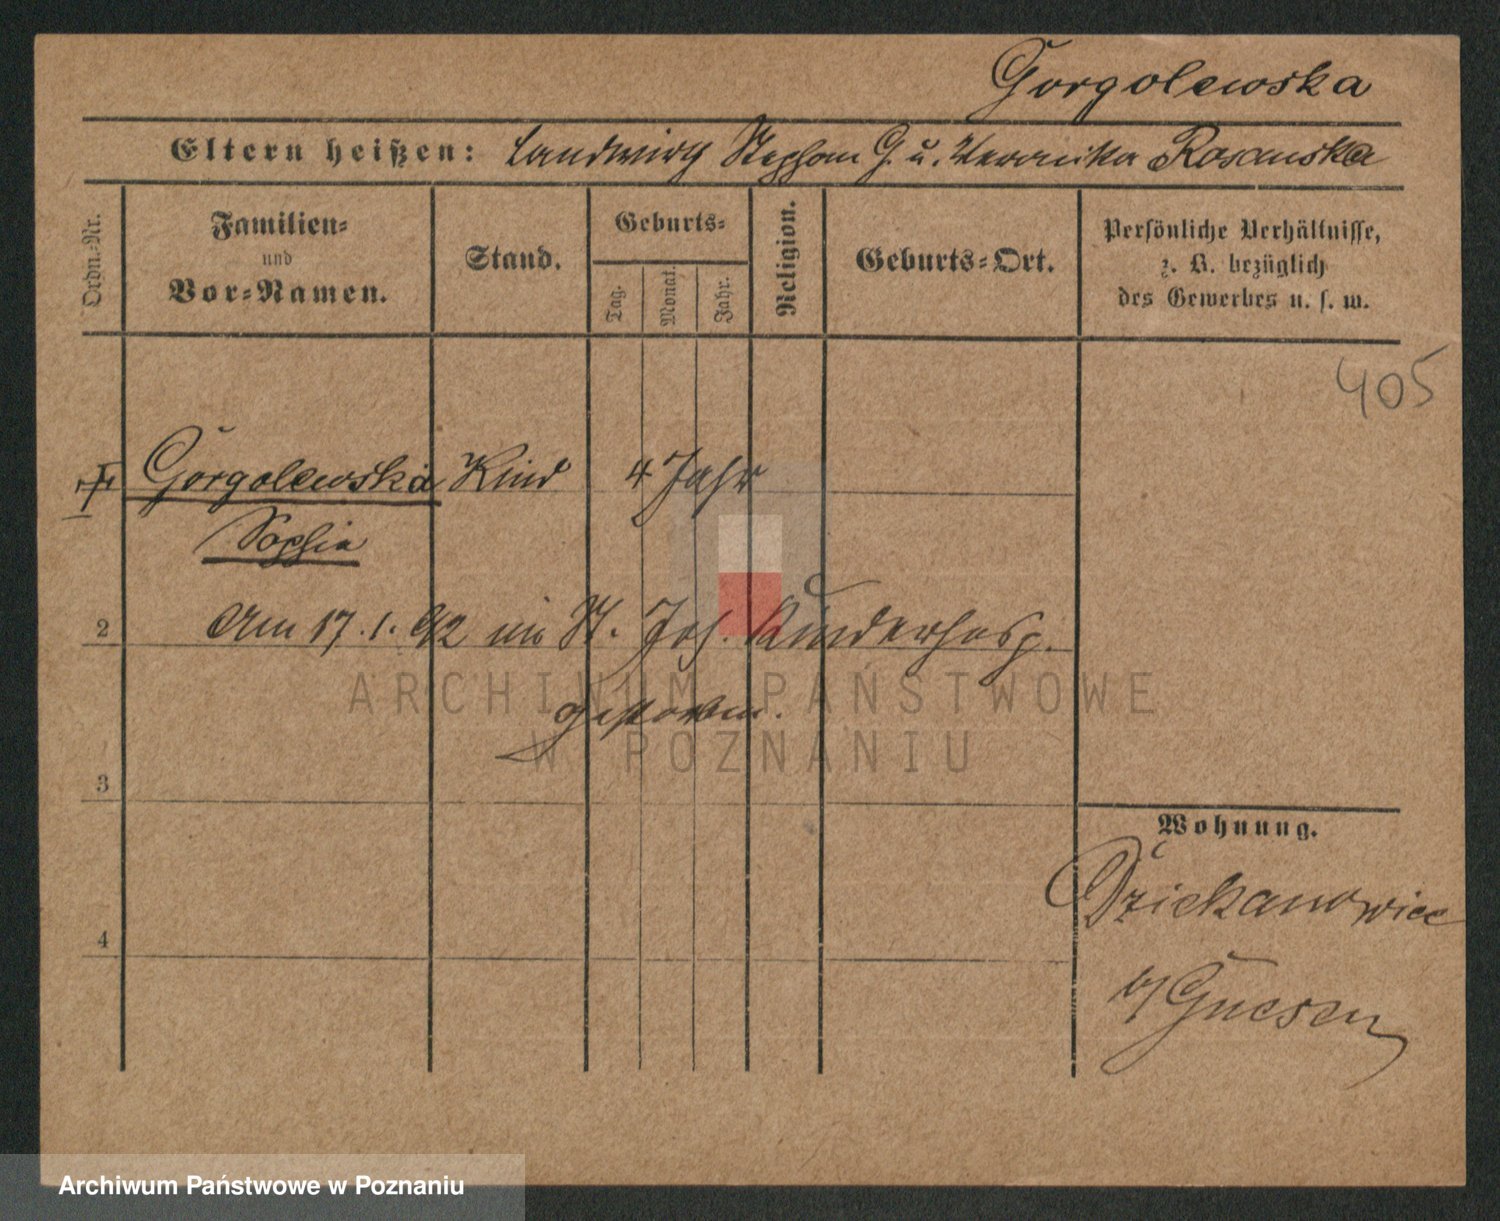 Gorgolewska
Eltern heißen: Landwirth Stephan G. u. Veronika Rosanska
Ordn.-Nr.
Familien-
und
Vor-Namen.
Stand.
Geburts-
Tag.
Monat.
Jahr.
Religion.
Geburts-Ort.
Persönliche Verhältnisse,
z. B. bezüglich
des Gewerbes u. s. w.
405
Gorgolewska Kind 4 Jahr
Sophia
2 Am 17.1.92 im St. Jos. Kinderhosp.
gestorben.
3
4
Wohnung.
Dziekanowice
b/Gnesen
ARCHIWUM PAŃSTWOWE
W POZNANIU
Archiwum Państwowe w Poznaniu